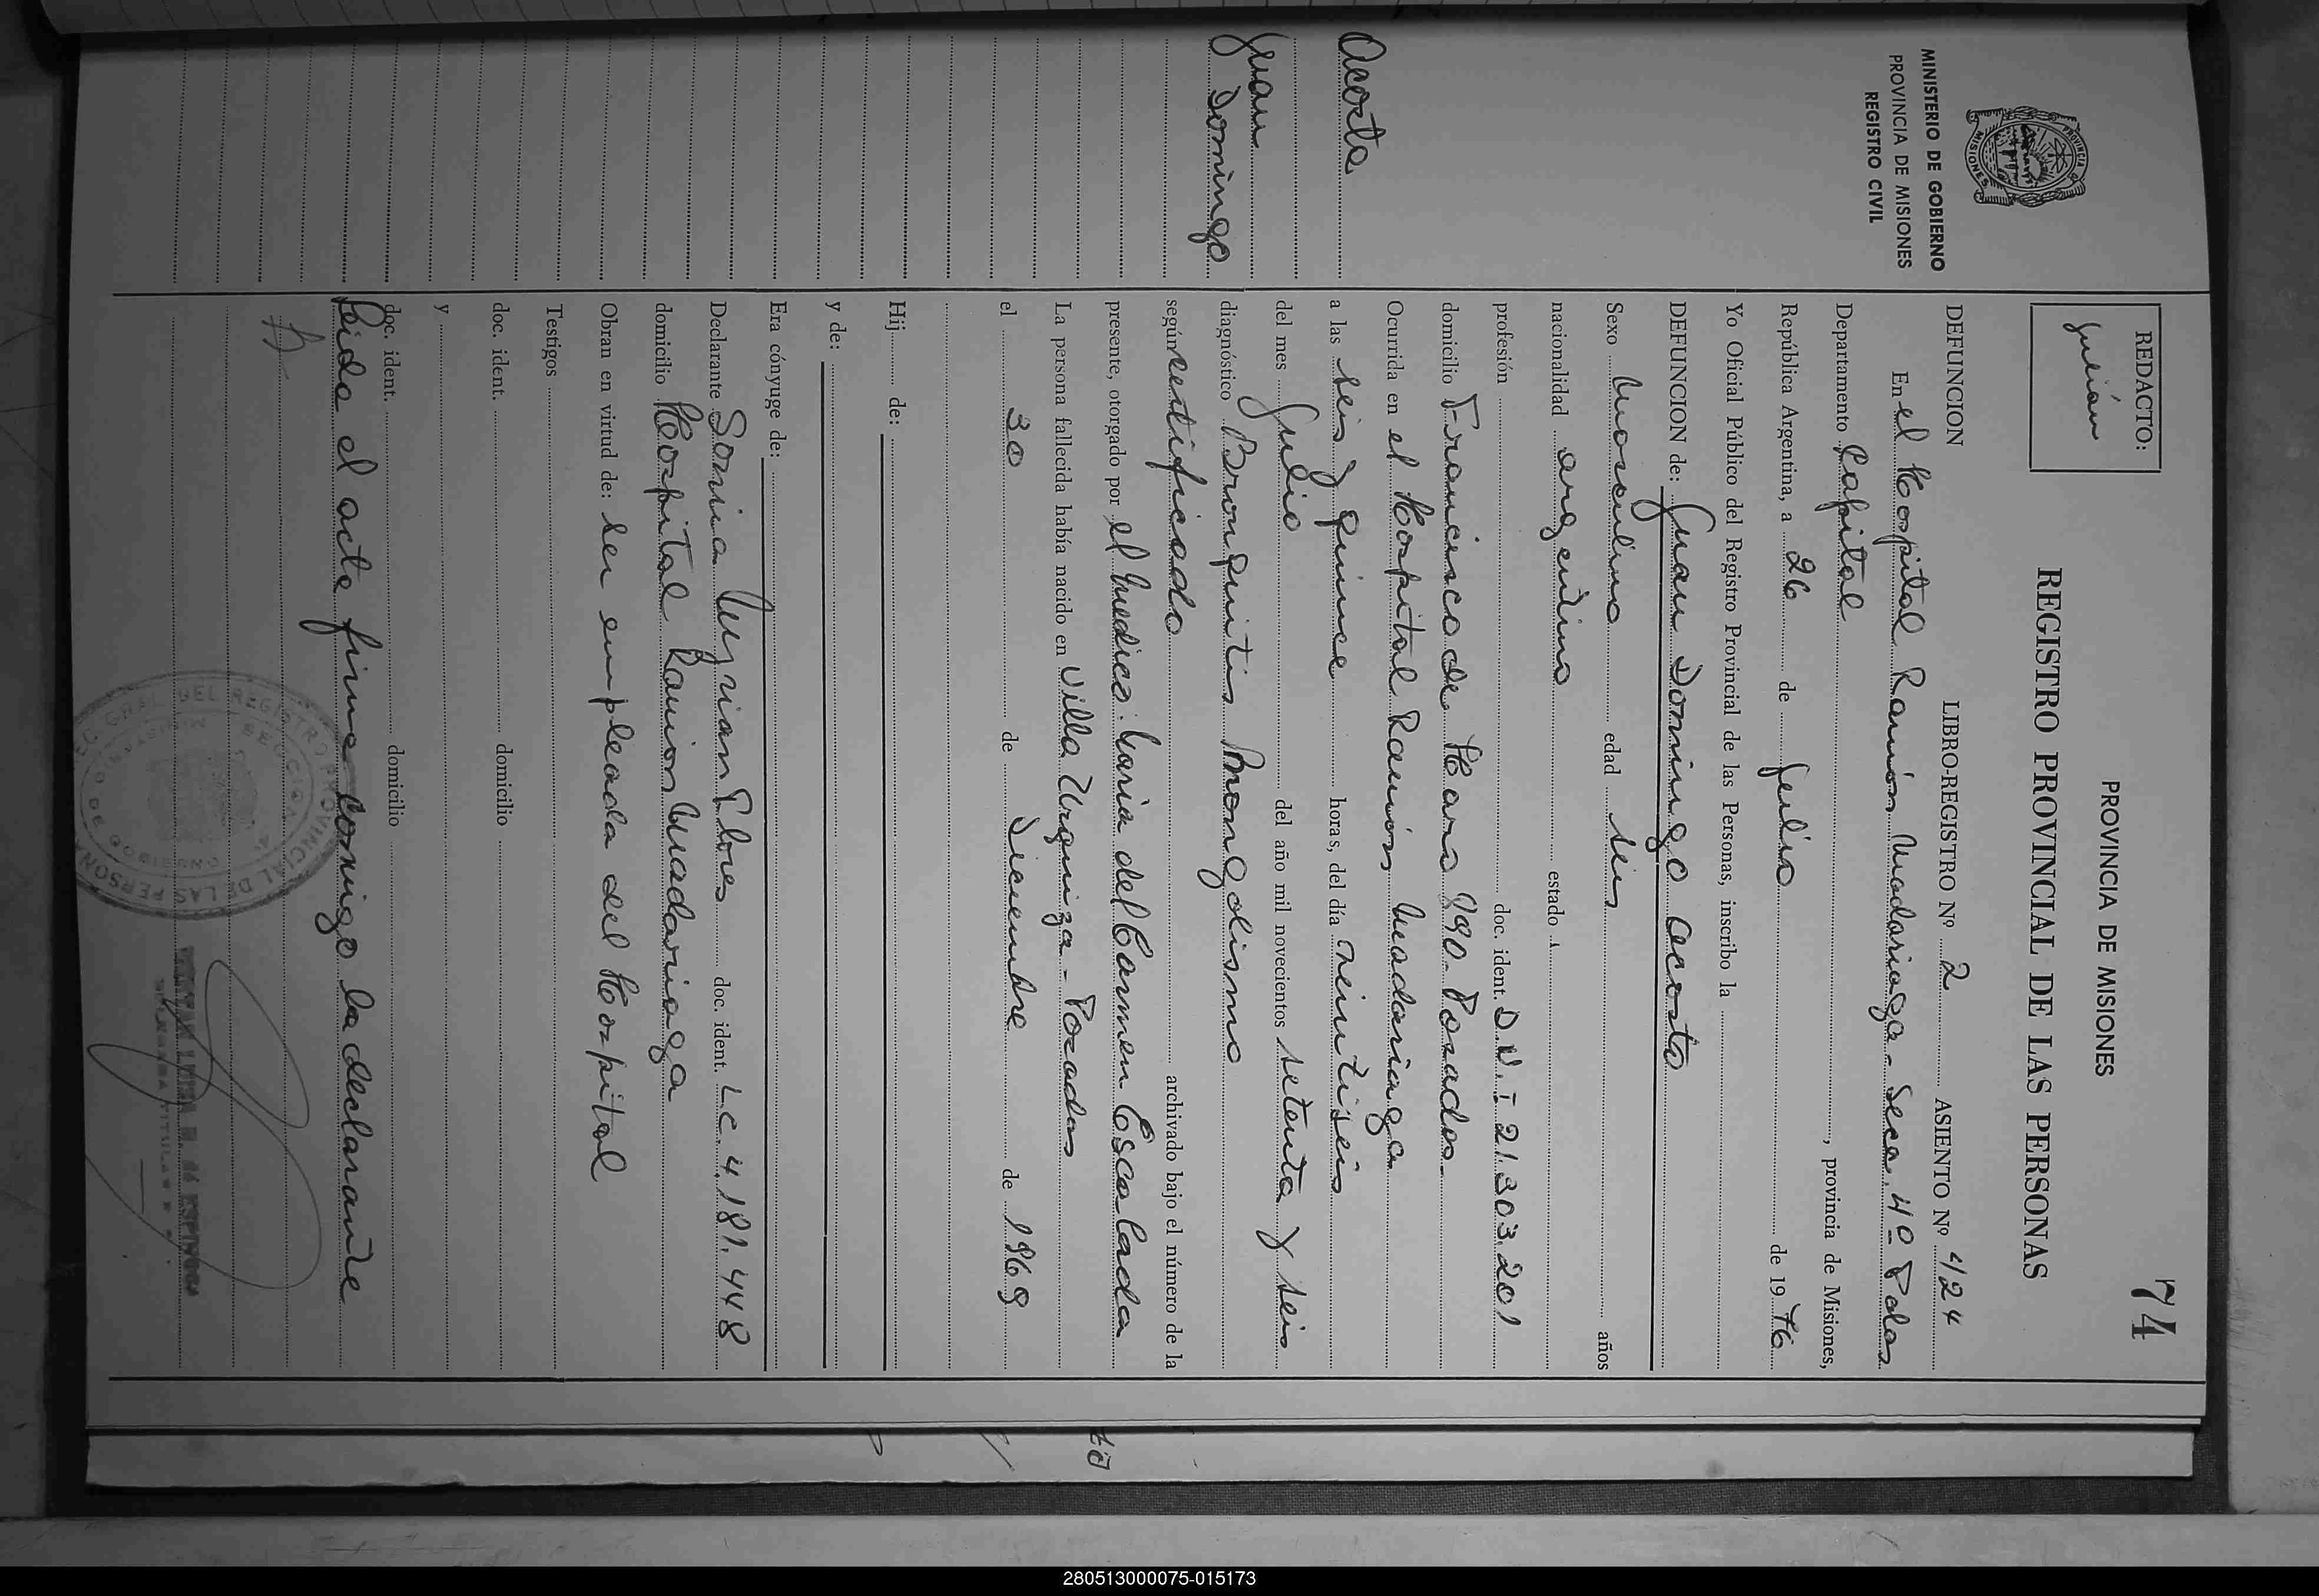 74
PROVINCIA DE MISIONES
REGISTRO PROVINCIAL DE LAS PERSONAS
REDACTO:
MINISTERIO DE GOBIERNO
PROVINCIA DE MISIONES
REGISTRO CIVIL
DEFUNCION LIBRO-REGISTRO Nº 2 ASIENTO Nº 424
En el Hospital Ramón Madariaga - Secc. 4º Pdas
Departamento Capital, provincia de Misiones,
República Argentina, a 26 de Julio de 1976
Yo Oficial Público del Registro Provincial de las Personas, inscribo la
DEFUNCION de: Juan Domingo Acosta
Sexo Masculino edad seis años
nacionalidad argentino estado
profesión doc. ident. D.N.I 21.303.201
domicilio Francisco de Haro 990 - Posadas -
Ocurrida en el Hospital Ramón Madariaga
Acosta
a las seis y quince horas, del día veintiseis
del mes Julio del año mil novecientos setenta y seis
Juan
Domingo
diagnóstico Bronquitis Mongolismo
según certificado archivado bajo el número de la
presente, otorgado por el Médico: María del Carmen Escalada
La persona fallecida había nacido en Villa Urquiza - Posadas
el 30 de Diciembre de 1969
Hij de:
y de:
Era cónyuge de:
Declarante Sonia Myrian Flores doc. ident. L.C. 4.181.448
domicilio Hospital Ramón Madariaga
Obran en virtud de: ser empleada del Hospital
Testigos
doc. ident. domicilio
y
doc. ident. domicilio
Leida el acta firma conmigo la declarante
280513000075-015173